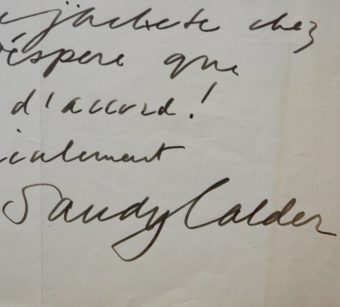 j'achète chez
éspere que
d'accord!
cialement
Sandy Calder